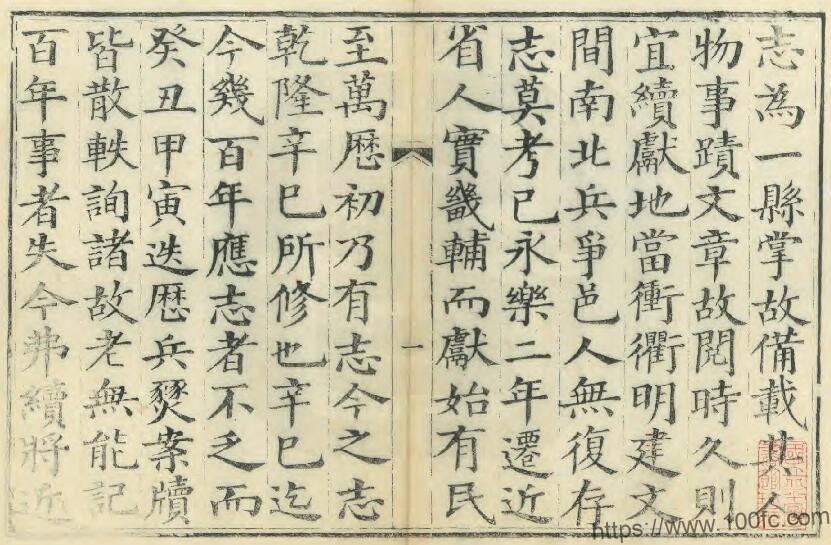 志為一縣掌故備載其人
物事蹟文章故閱時久則
宜續獻地當衝衢明建文
間南北兵爭邑人無復存
志莫考已永樂二年遷近
省人實畿輔而獻始有民
一
至萬歷初乃有志今之志
乾隆辛巳所修也辛巳迄
今幾百年應志者不乏而
癸丑甲寅迭歷兵燹案牘
皆散軼詢諸故老無能記
百年事者失今弗續將近
https://www.100fc.com